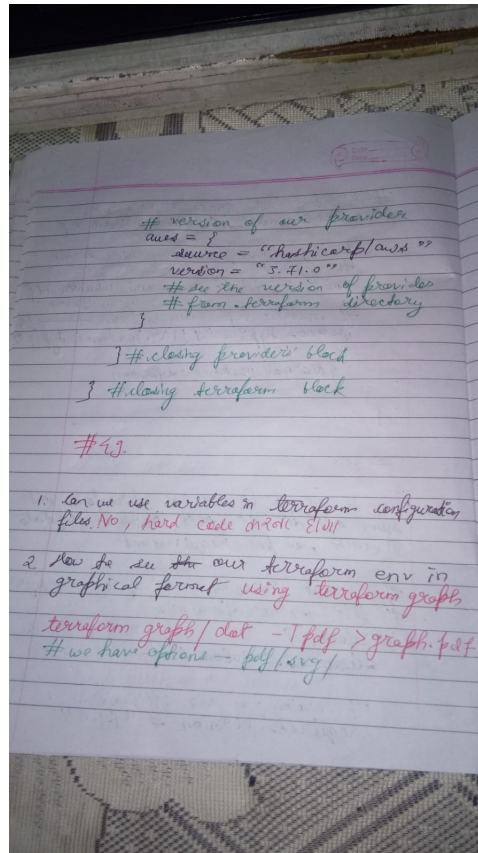 # version of our provider
aws = {
source = "hashicorp/aws"
version = "3.71.0"
# see the version of provider
# from .terraform directory
}
} # closing providers block
} # closing terraform block
1. Can we use variables in terraform configuration
files. No, hard code करना होगा
2 How to see our terraform env in
graphical format using terraform graph
terraform graph | dot -Tpdf > graph.pdf
# we have options - pdf/svg/